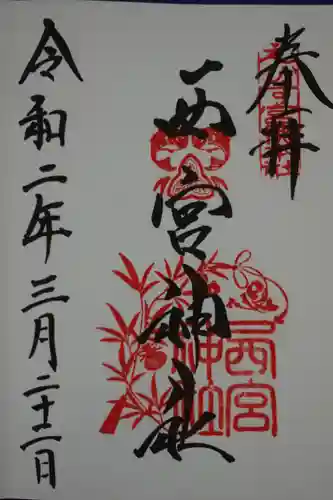 奉拝
西宮神社
西宮神社
令和二年三月二十一日